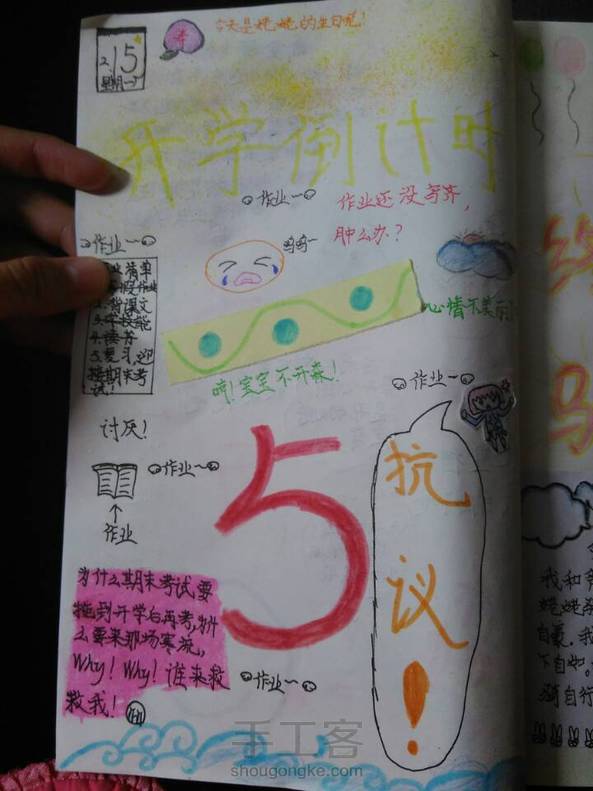 今天是姥姥的生日呢!
寿
2.15
星期一
开学倒计时
作业~
作业还没写完,
肿么办?
呜呜~
作业~
清单
1.寒假作业
2.背课文
3.学技能
4.读书
5.复习,迎
接期末考
试!
心情不美丽
哼!宝宝不开森!
作业~
讨厌!
作业~
作业
5
抗
议
!
为什么期末考试要
拖到开学后再考,为什
么要来那场寒流,,
Why! Why! 谁来救
救我!
作业~
手工客
shougongke.com
我和
姥姥
自
下自